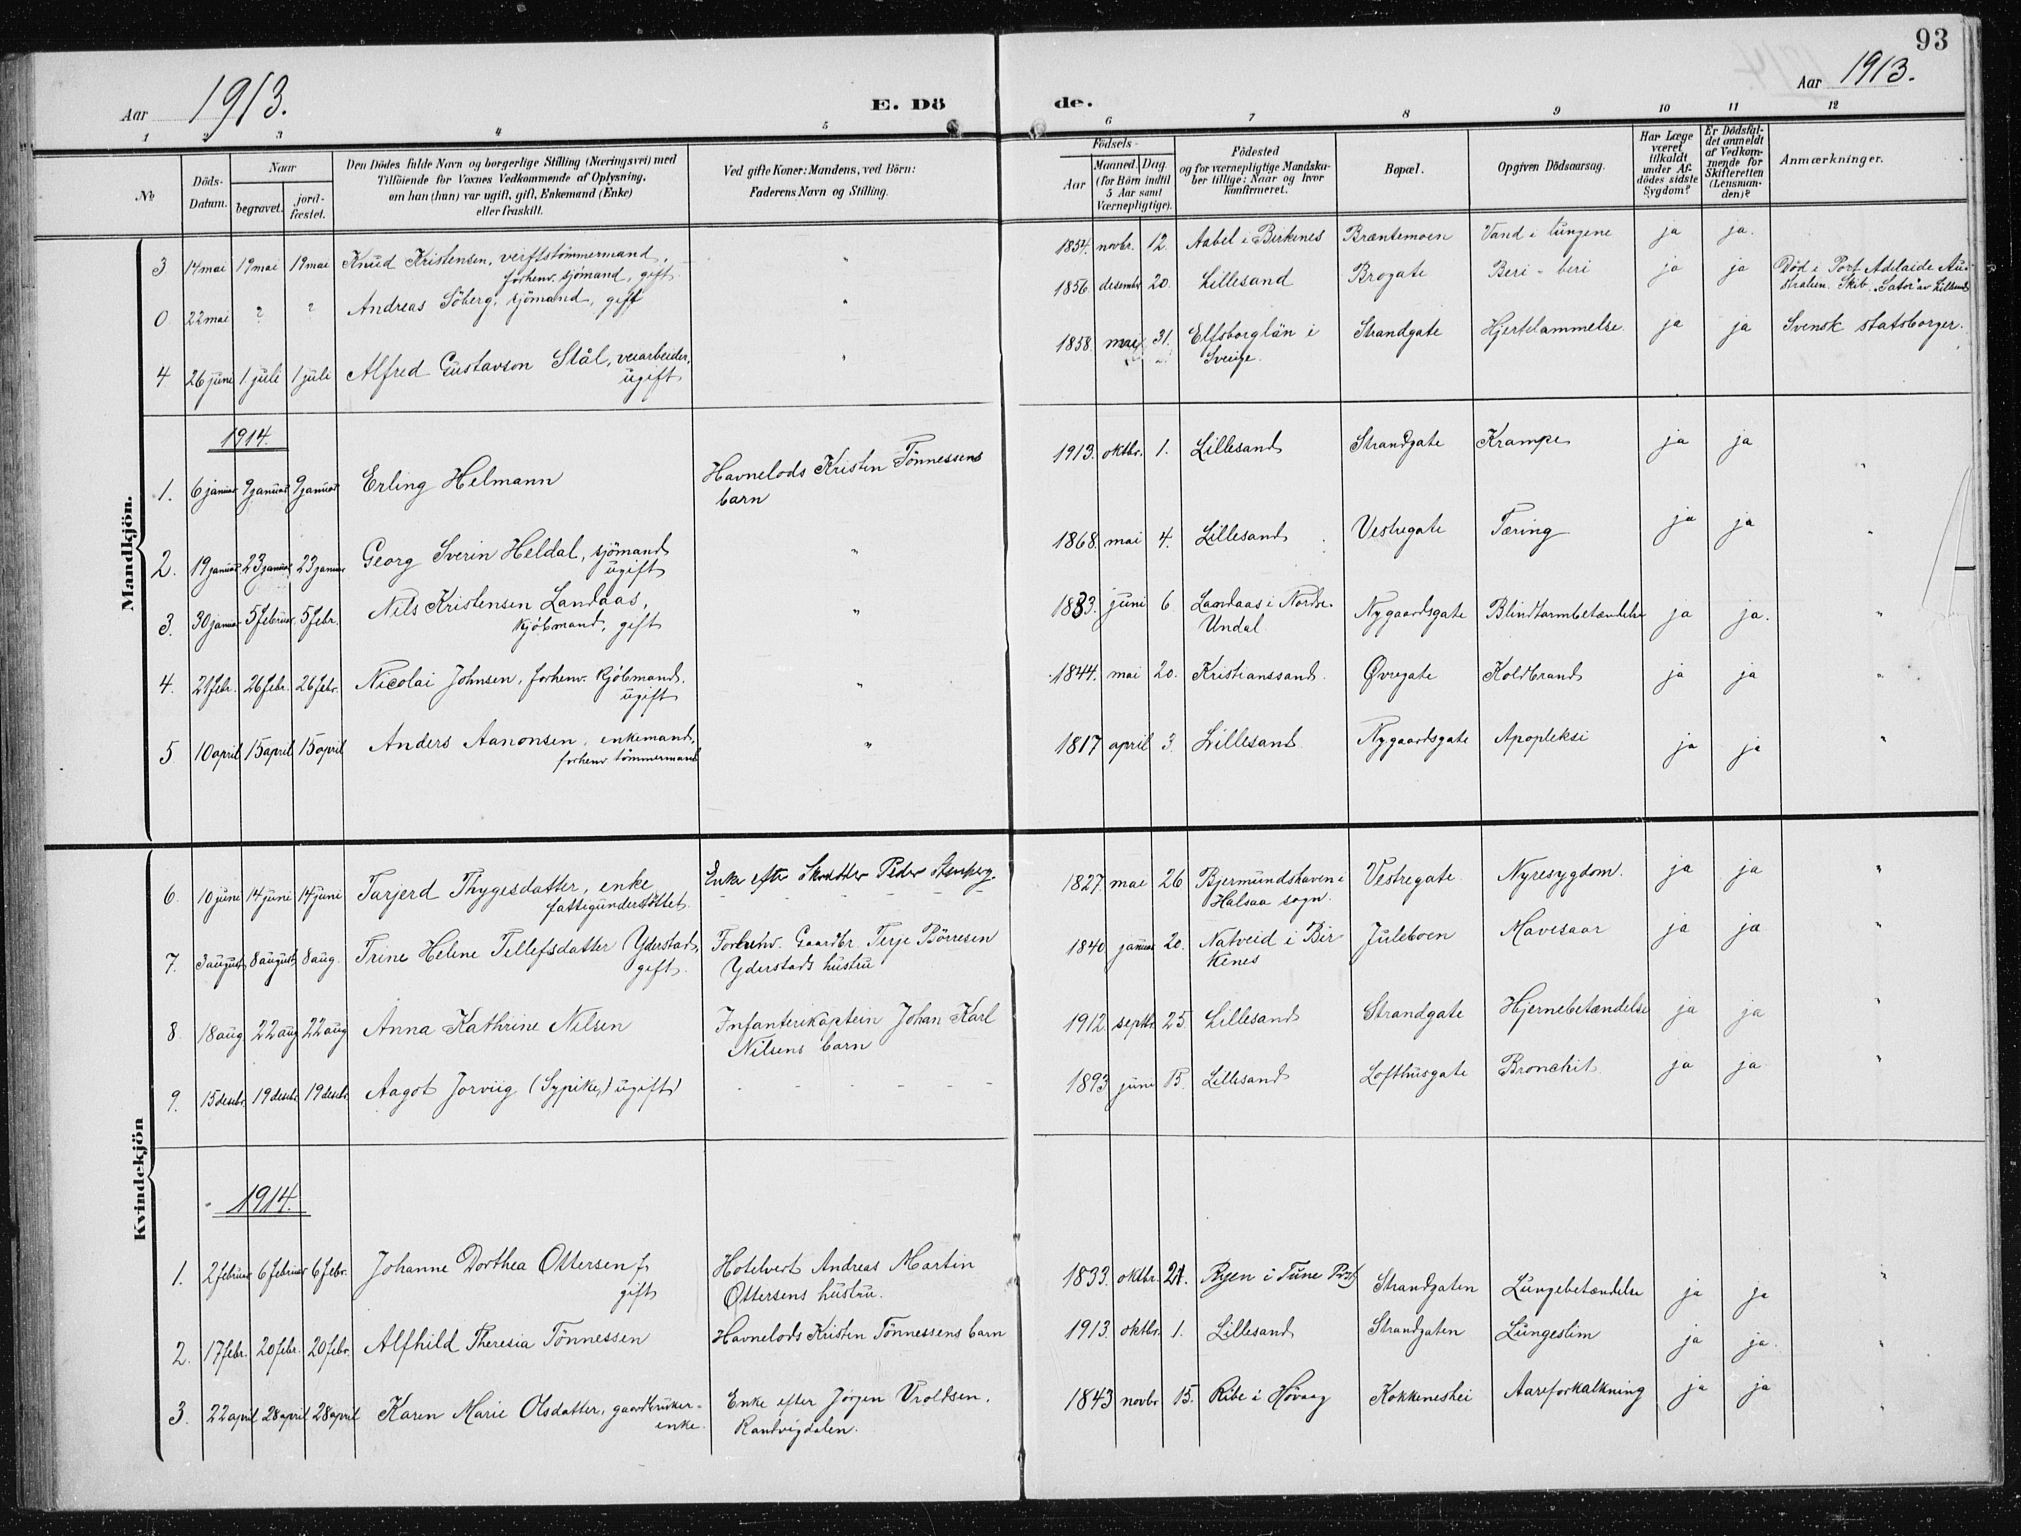 93
Aar 1913. E. Dö de. Aar 1913.
1 2 3 4 5 6 7 8 9 10 11 12
No
Döds-Datum.
Naar
begravet.
jord-fæstet.
Den Dödes fulde Navn og borgerlige Stilling (Næringsvei) med
Tilföiende for Voxnes Vedkommende af Oplysning,
om han (hun) var ugift, gift, Enkemand (Enke)
eller fraskilt.
Ved gifte Koner: Mandens, ved Börn:
Faderens Navn og Stilling.
Födsels-
Aar
Maaned. Dag.
(for Börn indtil
5 Aar samt
Værnepligtige).
Födested
og for værnepligtige Mandska-
ber tillige: Naar og hvor
konfirmeret.
Bopæl.
Opgiven Dödsaarsag.
Har Læge
været
tilkaldt
under Af-
dödes sidste
Sygdom?
Er Dödsfal-
det anmeldt
af Vedkom-
mende for
Skifteretten
(Lensman-
den)?
Anmærkninger.
Mandkjön.
3 14 mai 19 mai 19 mai Knud Kristensen, verftstömmermand, " 1854. novbr. 12. Aabel i Birkenes Bræntemoen Vand i lungene ja ja.
forhenv. sjömand, gift
0 22 mai ? ? Andreas Söberg, sjömand, gift " 1856. desembr. 20. Lillesand Brogate Beri-beri ja ja Död i Port Adelaide Au-
stralien. Skib. "Sator" av Lillesand
4 26 juni 1 juli 1 juli Alfred Gustavson Stål, veiarbeider, " 1858. mai 31. Elfsborglän i Strandgate Hjertelammelse. ja ja Svensk statsborger.
ugift Sverige.
1914.
1. 6 januar 9 januar 9 januar Erling Helmann Havnelods Kristen Tönnessens 1913. oktbr. 1. Lillesand Strandgate Krampe ja ja "
barn
2. 19 januar 23 januar 23 januar Georg Sverin Heldal, sjömand " 1868. mai 4. Lillesand Vestregate Tæring ja ja "
ugift
3. 30 januar 5 februar 5 febr. Nils Kristensen Landaas, " 1883. juni 6 Landaas i Nordre- Nygaardsgate Blindtarmbetændelse ja ja. "
kjöbmand, gift Undal
4. 21 febr. 26 febr. 26 febr. Nicolai Johnsen, forhenv. kjöbmand, " 1844. mai 20. Kristianssand. Øvregate Koldbrand ja ja "
ugift
5 10 april 15 april 15 april Anders Aanonsen, enkemand, " 1817 april 3. Lillesand Nygaardsgate Apopleksi ja ja "
forhenv tömmermand
Kvindekjön
6. 10 juni 14 juni 14 juni Tarjerd Thygesdatter, enke Enke efter Peder 1827 mai 26 Bjermundshaven i Vestregate Nyresygdom. ja ja "
fattigunderstöttet. Halsaa sogn.
7. 3 august 8 august 8 aug. Trine Helene Tellefsdatter Yderstad, Forhenv. Gaardbr. Terje Börresen 1840 januar 20. Natveid i Bir Juleboen Mavesaar ja ja "
gift. Yderstads hustru kenes
8 18 aug 22 aug 22 aug Anna Kathrine Nilsen Infanterikaptein Johan Karl 1912 septbr. 25. Lillesand Strandgate Hjernebetændelse ja ja "
Nilsens barn
9. 15 desbr. 19 desbr. 19 desbr. Aagot Jorviig (Sypike,) ugift) - - - - - 1893 juni 15. Lillesand Lofthusgate Bronchit ja ja "
1914.
1. 2 februar 6 februar 6 febr. Johanne Dorthea Ottersen f. Hotelvert Andreas Martin 1833. oktbr. 21. Ryen i Tune Præst Strandgaten Lungebetændelse ja ja "
gift Ottersens hustru.
2. 17 febr. 20 febr. 20 febr. Alfhild Theresia Tönnessen Havnelods Kristen Tönnessens barn 1913. oktbr. 1. Lillesand Strandgaten Lungeslim ja ja. "
3. 22 april 28 april 28 april Karen Marie Olsdatter, gaardbruker- Enke efter Jörgen Vroldsen, 1843 novbr 15. Ribe i Hövaag Kokkeneshei Aareforkalkning ja ja "
enke. Randvigdalen.